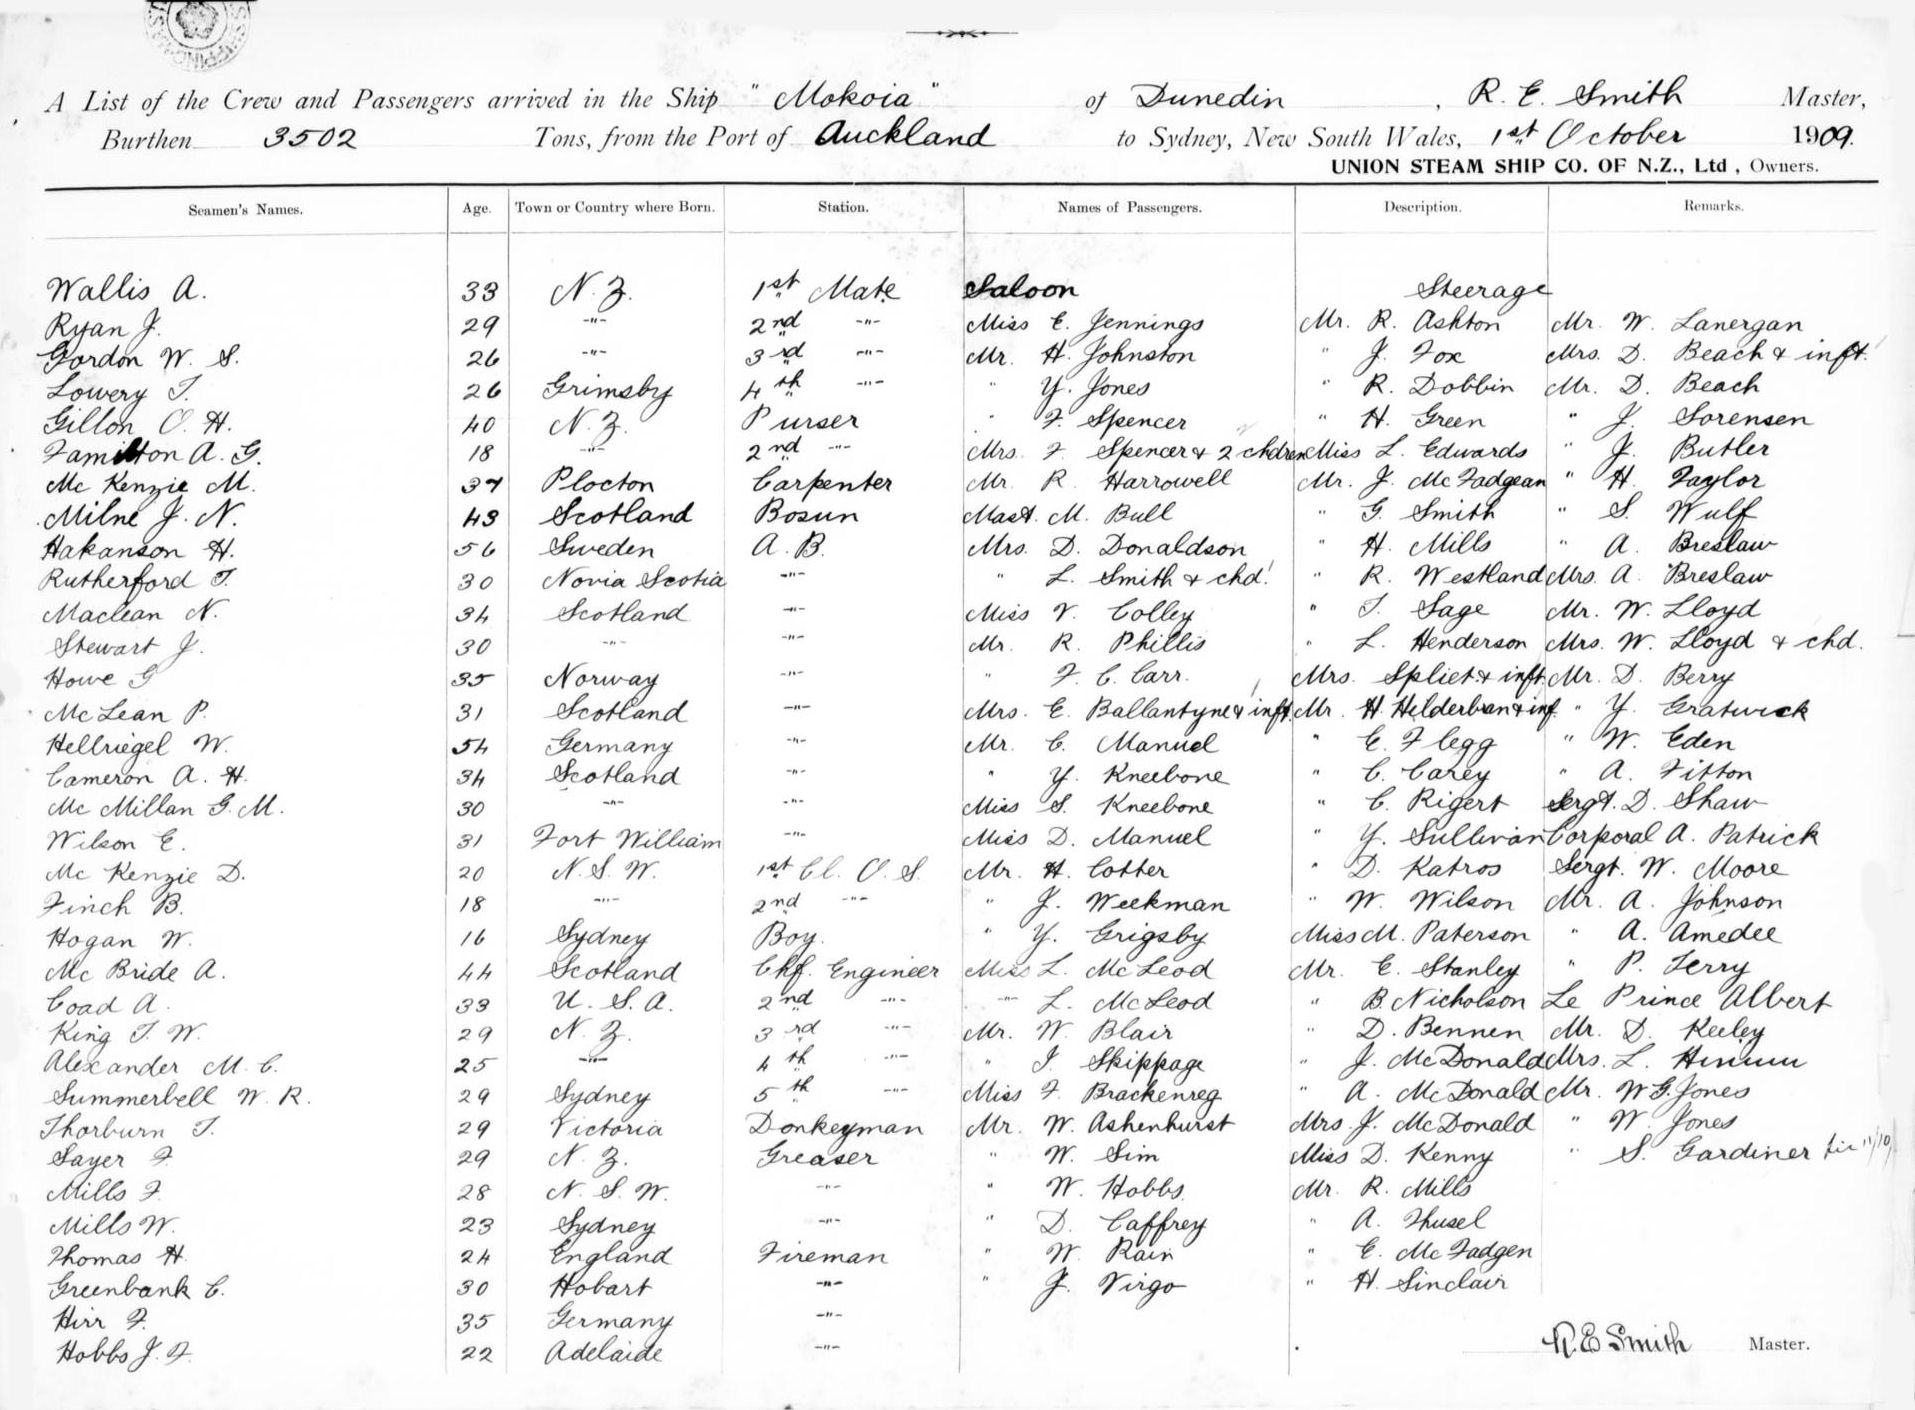 A List of the Crew and Passengers arrived in the Ship "Mokoia" of Dunedin, R. E. Smith Master,
Burthen 3502 Tons, from the Port of Auckland to Sydney, New South Wales, 1st October 1909.
UNION STEAM SHIP CO. OF N.Z., Ltd, Owners.
Seamen's Names. Age. Town or Country where Born. Station. Names of Passengers. Description. Remarks.
Wallis A. 33 N. Z. 1st Mate Saloon Steerage
Ryan J. 29 -"- 2nd -"- Miss E. Jennings Mr. R. Ashton Mr. W. Lanergan
Gordon W. S. 26 -"- 3rd -"- Mr. H. Johnston " J. Fox Mrs. D. Beach & inft.
Lowery T. 26 Grimsby 4th -"- " Y. Jones " R. Dobbin Mr. D. Beach
Gillon O. H. 40 N. Z. Purser " F. Spencer " H. Green " J. Sorensen
Familton A. G. 18 -"- 2nd -"- Mrs. F. Spencer & 2 chdren Miss L. Edwards " J. Butler
Mc Kenzie M. 37 Plocton Carpenter Mr. R. Harrowell Mr. J. McFadgean " H. Taylor
Milne J. N. 43 Scotland Bosun Mast. M. Bull " G. Smith " S. Wulf
Hakanson H. 56 Sweden A. B. Mrs. D. Donaldson " H. Mills " A. Breslaw
Rutherford T. 30 Novia Scotia -"- " L. Smith & chd. " R. Westland Mrs. A. Breslaw
Maclean N. 34 Scotland -"- Miss V. Colley " T. Sage Mr. W. Lloyd
Stewart J. 30 -"- -"- Mr. R. Phillis " L. Henderson Mrs. W. Lloyd & chd.
Howe G 35 Norway -"- " F. C. Carr. Mrs. Spliet & inft. Mr. D. Berry
McLean P. 31 Scotland -"- Mrs. E. Ballantyne & inft. Mr. H. Helderban & inf. " Y. Gratwick
Hellriegel W. 54 Germany -"- Mr. C. Manuel " E. Flegg " W. Eden
Cameron A. H. 34 Scotland -"- " Y. Kneebone " C. Carey " A. Fitton
Mc Millan G. M. 30 -"- -"- Miss S. Kneebone " C. Rigert Sergt. D. Shaw
Wilson E. 31 Fort William -"- Miss D. Manuel " Y. Sullivan Corporal A. Patrick
Mc Kenzie D. 20 N. S. W. 1st Cl. O. S. Mr. H. Cotter " D. Katros Sergt. W. Moore
Finch B. 18 -"- 2nd -"- " J. Weekman " W. Wilson Mr. A. Johnson
Hogan W. 16 Sydney Boy. " Y. Grigsby Miss M. Paterson " A. Amedee
Mc Bride A. 44 Scotland Chf. Engineer Miss L. McLeod Mr. E. Stanley " P. Terry
Coad A. 33 U. S. A. 2nd -"- -"- L. McLeod " B. Nicholson Le Prince Albert
King T. W. 29 N. Z. 3rd -"- Mr. W. Blair " D. Bennen Mr. D. Keeley
Alexander M. C. 25 -"- 4th -"- " I. Skippage " J. McDonald Mrs. L.
Summerbell W. R. 29 Sydney 5th -"- Miss F. Brackenreg " A. McDonald Mr. W G. Jones
Thorburn T. 29 Victoria Donkeyman Mr. W. Ashenhurst Mrs. J. McDonald " W. Jones
Sayer F. 29 N. Z. Greaser " W. Sim Miss D. Kenny " S. Gardiner
Mills F. 28 N. S. W. -"- " W. Hobbs Mr. R. Mills
Mills W. 23 Sydney -"- " D. Caffrey " A. Thusel
Thomas H. 24 England Fireman " W. Rain " E. McFadgen
Greenbank C. 30 Hobart -"- " J. Virgo " H. Sinclair
Hirr F. 35 Germany -"-
Hobbs J. F. 22 Adelaide -"-
R E Smith Master.